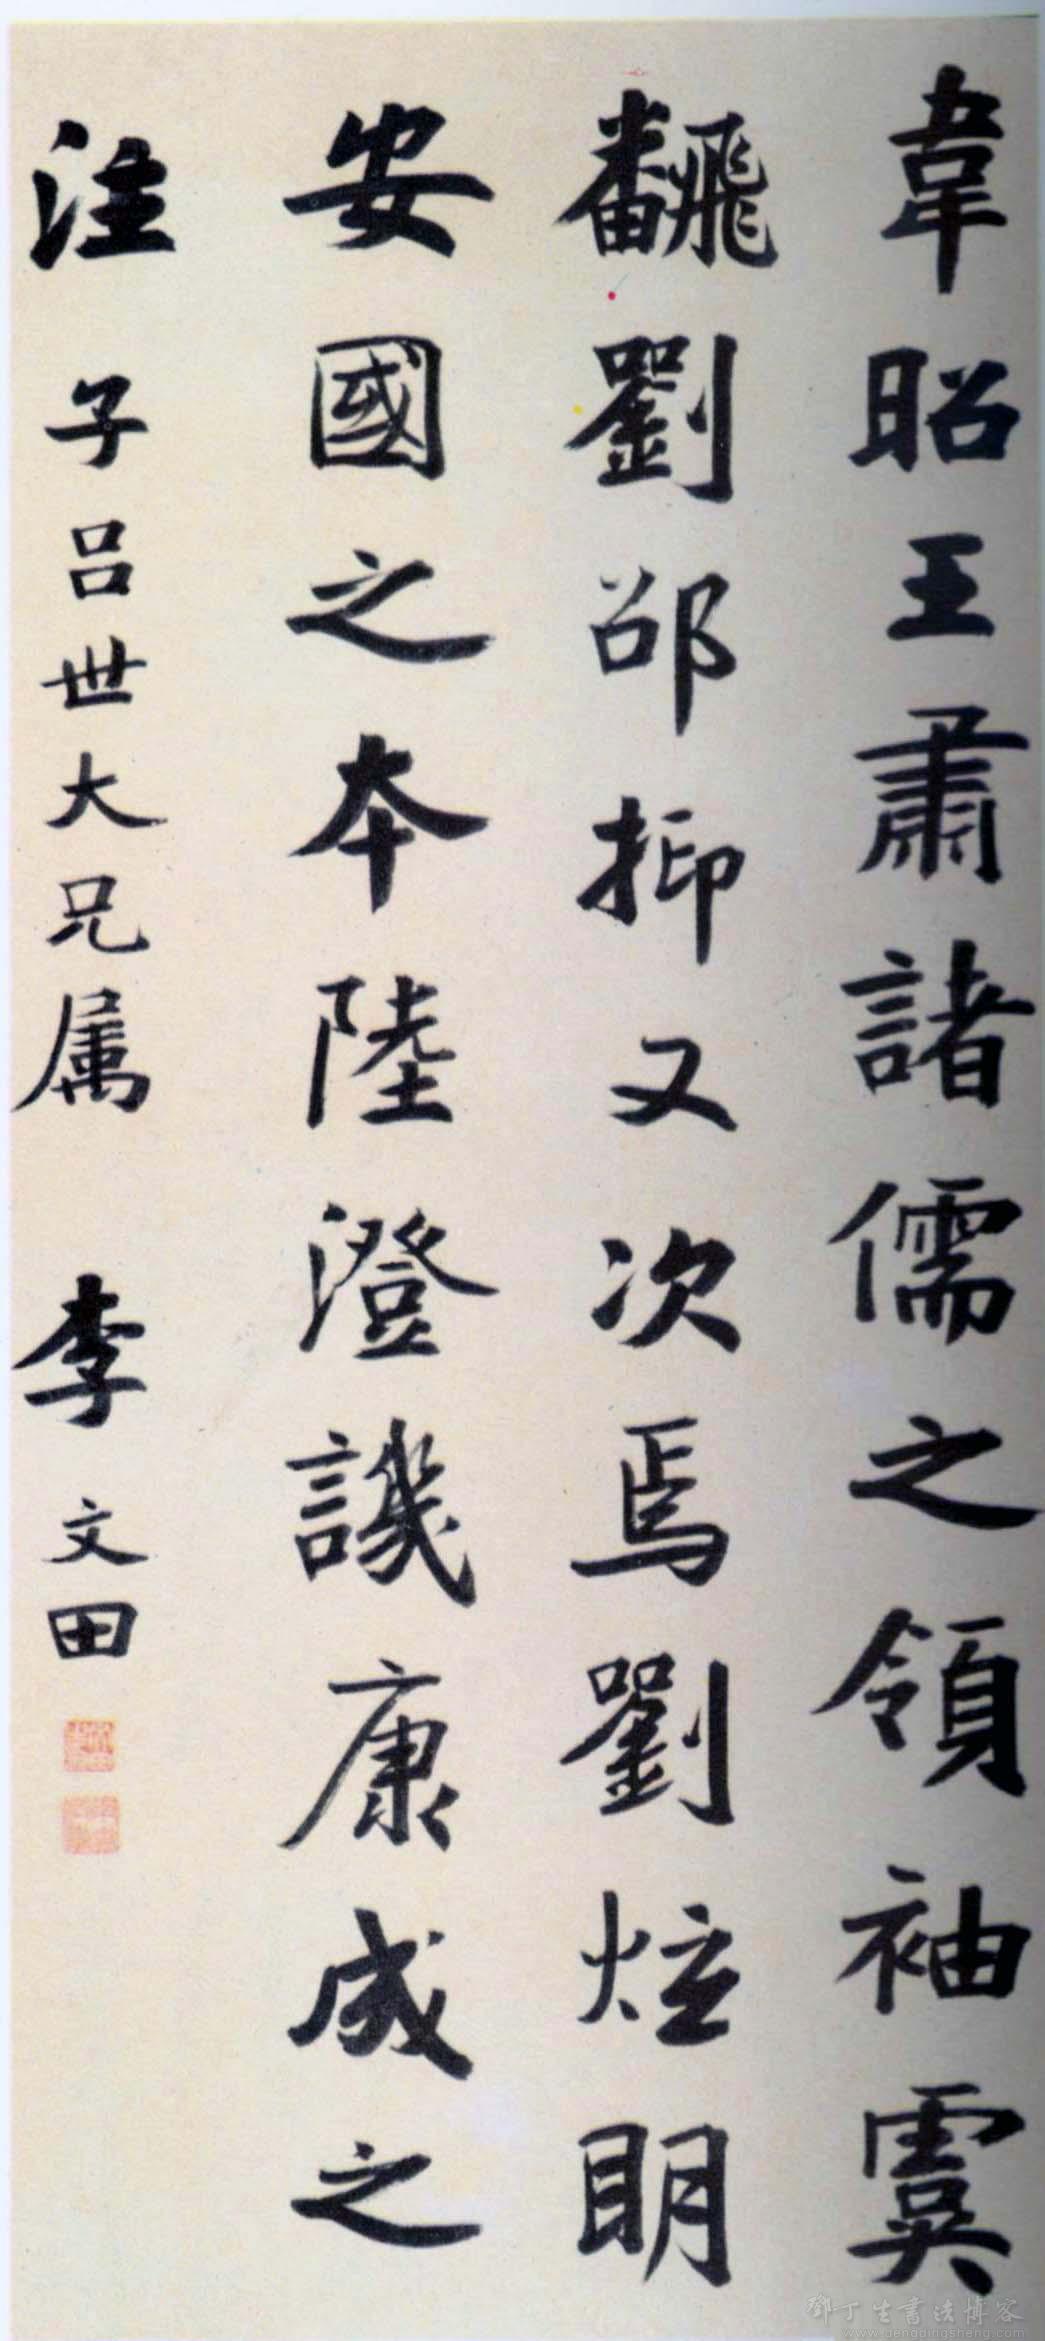 韋昭王肅諸儒之領袖虞
飜劉邵抑又次焉劉炫明
安國之本陸澄譏康成之
注 子呂世大兄属 李文田
鄧丁生書法博客
www.dengdingsheng.com